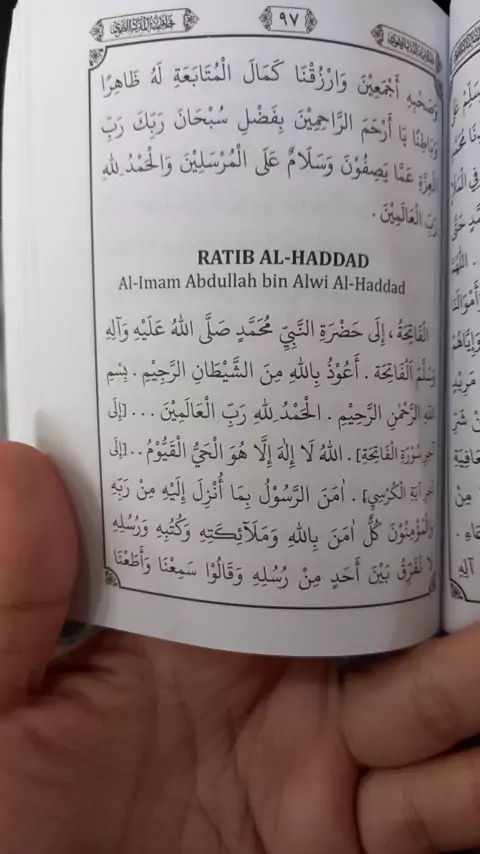 خلاصة المدد النبوي
٩٧
وَصَحْبِهِ أَجْمَعِيْنَ وَارْزُقْنَا كَمَالَ الْمُتَابَعَةِ لَهُ ظَاهِرًا
وَبَاطِنًا يَا أَرْحَمَ الرَّاحِمِيْنَ بِفَضْلِ سُبْحَانَ رَبِّكَ رَبِّ
الْعِزَّةِ عَمَّا يَصِفُوْنَ وَسَلَامٌ عَلَى الْمُرْسَلِيْنَ وَالْحَمْدُ لِلهِ
رَبِّ الْعَالَمِيْنَ .
RATIB AL-HADDAD
Al-Imam Abdullah bin Alwi Al-Haddad
الْفَاتِحَةُ ، إِلَى حَضْرَةِ النَّبِيِّ مُحَمَّدٍ صَلَّى اللهُ عَلَيْهِ وَآلِهِ
وَسَلَّمَ اَلْفَاتِحَة . أَعُوْذُ بِاللهِ مِنَ الشَّيْطَانِ الرَّجِيْمِ . بِسْمِ
اللهِ الرَّحْمٰنِ الرَّحِيْمِ . الْحَمْدُ لِلهِ رَبِّ الْعَالَمِيْنَ ... [إِلَى
آخِرِ سُوْرَةِ الْفَاتِحَةِ] . اللهُ لَا إِلٰهَ إِلَّا هُوَ الْحَيُّ الْقَيُّوْمُ .. [إِلَى
آخِرِ آيَةِ الْكُرْسِيِّ] . اٰمَنَ الرَّسُوْلُ بِمَا أُنْزِلَ إِلَيْهِ مِنْ رَبِّهِ
وَالْمُؤْمِنُوْنَ كُلٌّ اٰمَنَ بِاللهِ وَمَلَآئِكَتِهِ وَكُتُبِهِ وَرُسُلِهِ
لَا نُفَرِّقُ بَيْنَ أَحَدٍ مِنْ رُسُلِهِ وَقَالُوْا سَمِعْنَا وَأَطَعْنَا